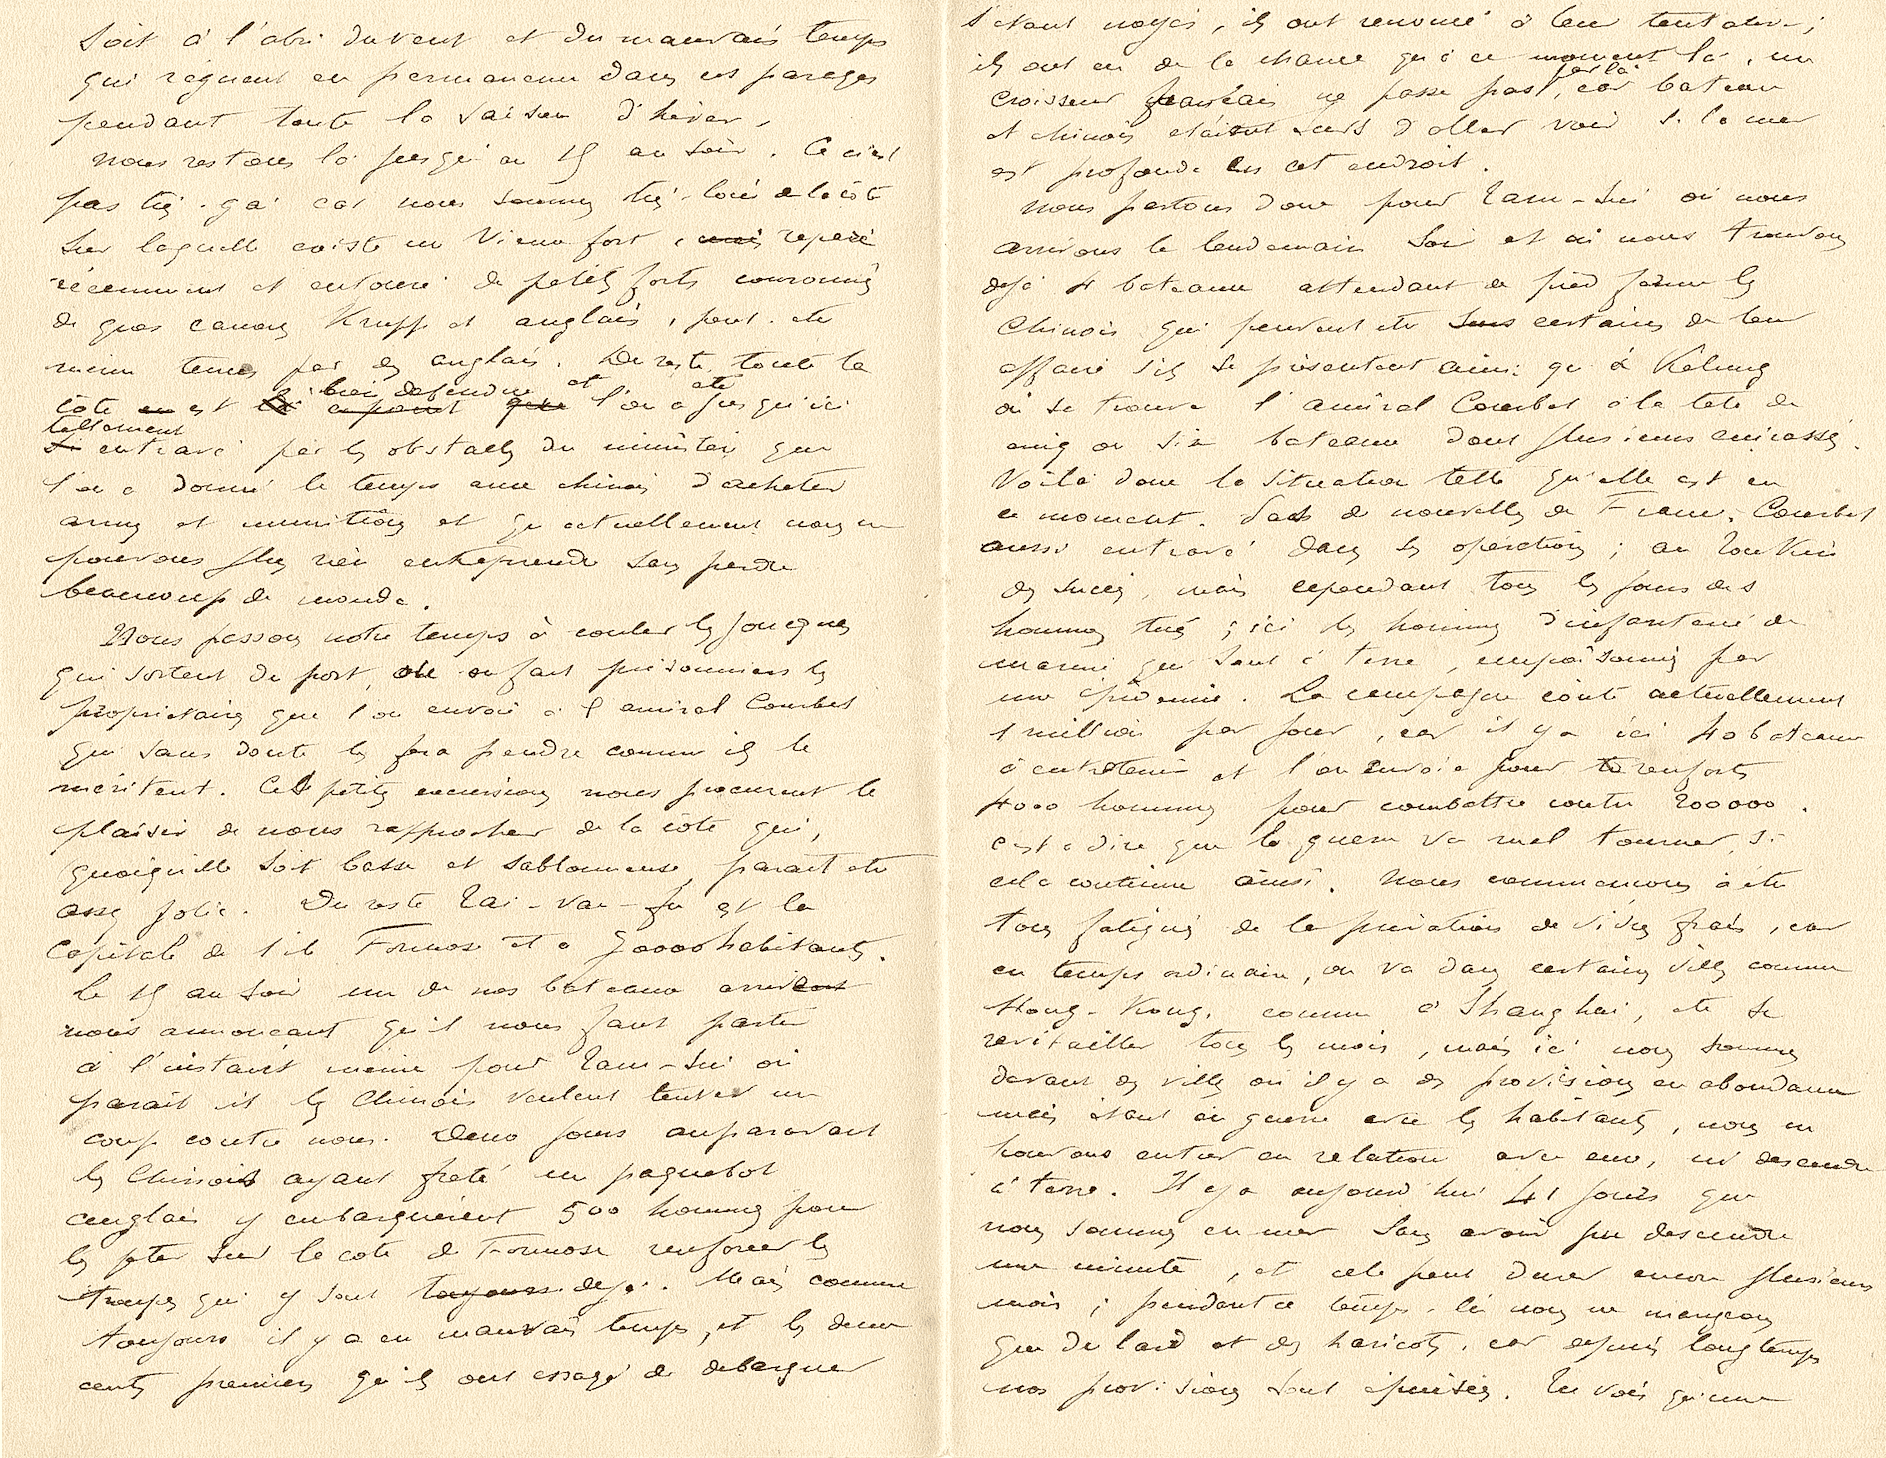 soit à l'abri du vent et du mauvais temps
qui règnent en permanence dans ces parages
pendant toute la saison d'hiver.
Nous restons là jusqu'au 15 au soir. Ce n'est
pas très-gai car nous sommes très-loin de la côte
sur laquelle existe un vieux fort, mais réparé
récemment et entouré de petits forts couronnés
de gros canons Krupp et anglais, peut-être
même tenus par des anglais. Du reste toute la
côte en est bien défendue et l'on a été jusqu'ici
tellement
si entravé par les obstacles du ministère que
l'on a donné le temps aux chinois d'acheter
armes et munitions et qu'actuellement nous ne
pouvons plus rien entreprendre sans perdre
beaucoup de monde.
Nous passons notre temps à couler les jonques
qui sortent du port, on en fait prisonniers les
propriétaires que l'on envoie à l'amiral Courbet
qui sans doute les fera pendre comme ils le
méritent. Ces petites excursions nous procurent le
plaisir de nous rapprocher de la côte qui,
quoiqu'elle soit basse et sablonneuse, parait être
assez jolie. Du reste Taï-Van-fu est la
capitale de l'île Formose et a 50000 habitants.
Le 15 au soir un de nos bateaux arrive
nous annoncant qu'il nous faut partir
à l'instant même pour Tam-Sui où
parait il les Chinois veulent tenter un
coup contre nous. Deux jours auparavant
les Chinois ayant freté un paquebot
anglais y embarquèrent 500 hommes pour
les jeter sur la cote de Formose renforcer les
troupes qui y sont toujours deja. Mais comme
toujours il y a eu mauvais temps, et les deux
cents premiers qu'ils ont essayé de debarquer
s'étant noyés, ils ont renoncé à leur tentative;
ils ont eu de la chance qu'à ce moment là, un
croiseur français ne passe pas par là, car bateau
et chinois étaient surs d'aller voir si la mer
est profonde en cet endroit.
Nous partons donc pour Tam-Sui où nous
arrivons le lendemain soir et où nous trouvons
dejà 4 bateaux attendant de pied ferme les
Chinois qui peuvent etre surs certains de leur
affaire s'ils se présentent ainsi qu'à Kélung
où se trouve l'amiral Courbet à la tete de
cinq ou six bateaux dont plusieurs cuirassés.
Voilà donc la situation telle qu'elle est en
ce moment. Pas de nouvelles de France, Courbet
aussi entravé dans ses opérations; au Tonkin
des succès, mais cependant tous les jours des
hommes tués; ici les hommes d'infanterie de
marine qui sont à terre, empoisonnés par
une épidémie. La campagne coûte actuellement
1 million par jour, car il y a ici 40 bateaux
à entretenir et l'on envoie pour renforts
4000 hommes pour combattre contre 200000.
c'est à dire que la guerre va mal tourner, si
cela continue ainsi. Nous commencons à être
tous fatigués de la privation de vivres frais, car
en temps ordinaire, on va dans certaines villes comme
Hong-Kong, comme à Shanghai, etc se
ravitailler tous les mois, mais ici nous sommes
devant des villes où il y a des provisions en abondance
mais étant en guerre avec les habitants, nous ne
pouvons entrer en relation avec eux, ni descendre
à terre. Il y a aujourd'hui 41 jours que
nous sommes en mer sans avoir pu descendre
une minute, et cela peut durer encore plusieurs
mois; pendant ce temps-là nous ne mangeons
que du lard et des haricots, car depuis longtemps
nos provisions sont épuisées. Tu vois qu'une